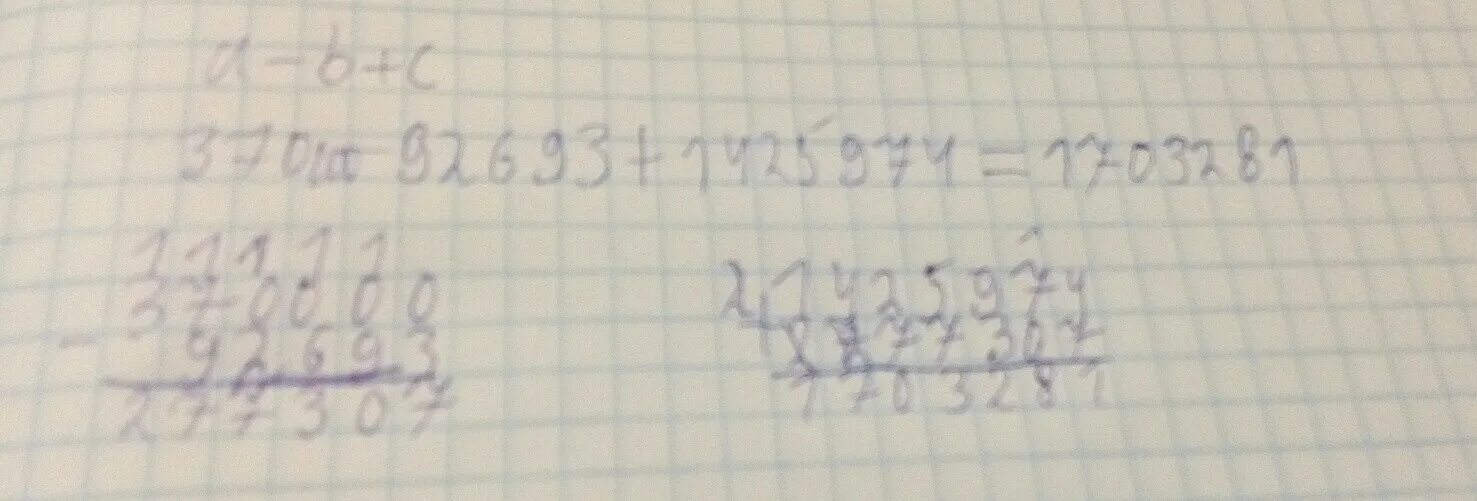 a-b+c
370000-92693+1425974=1703281
1 1 1 1 1
370000
- 92693
277307
1
2) 1425974
+ 277307
1703281